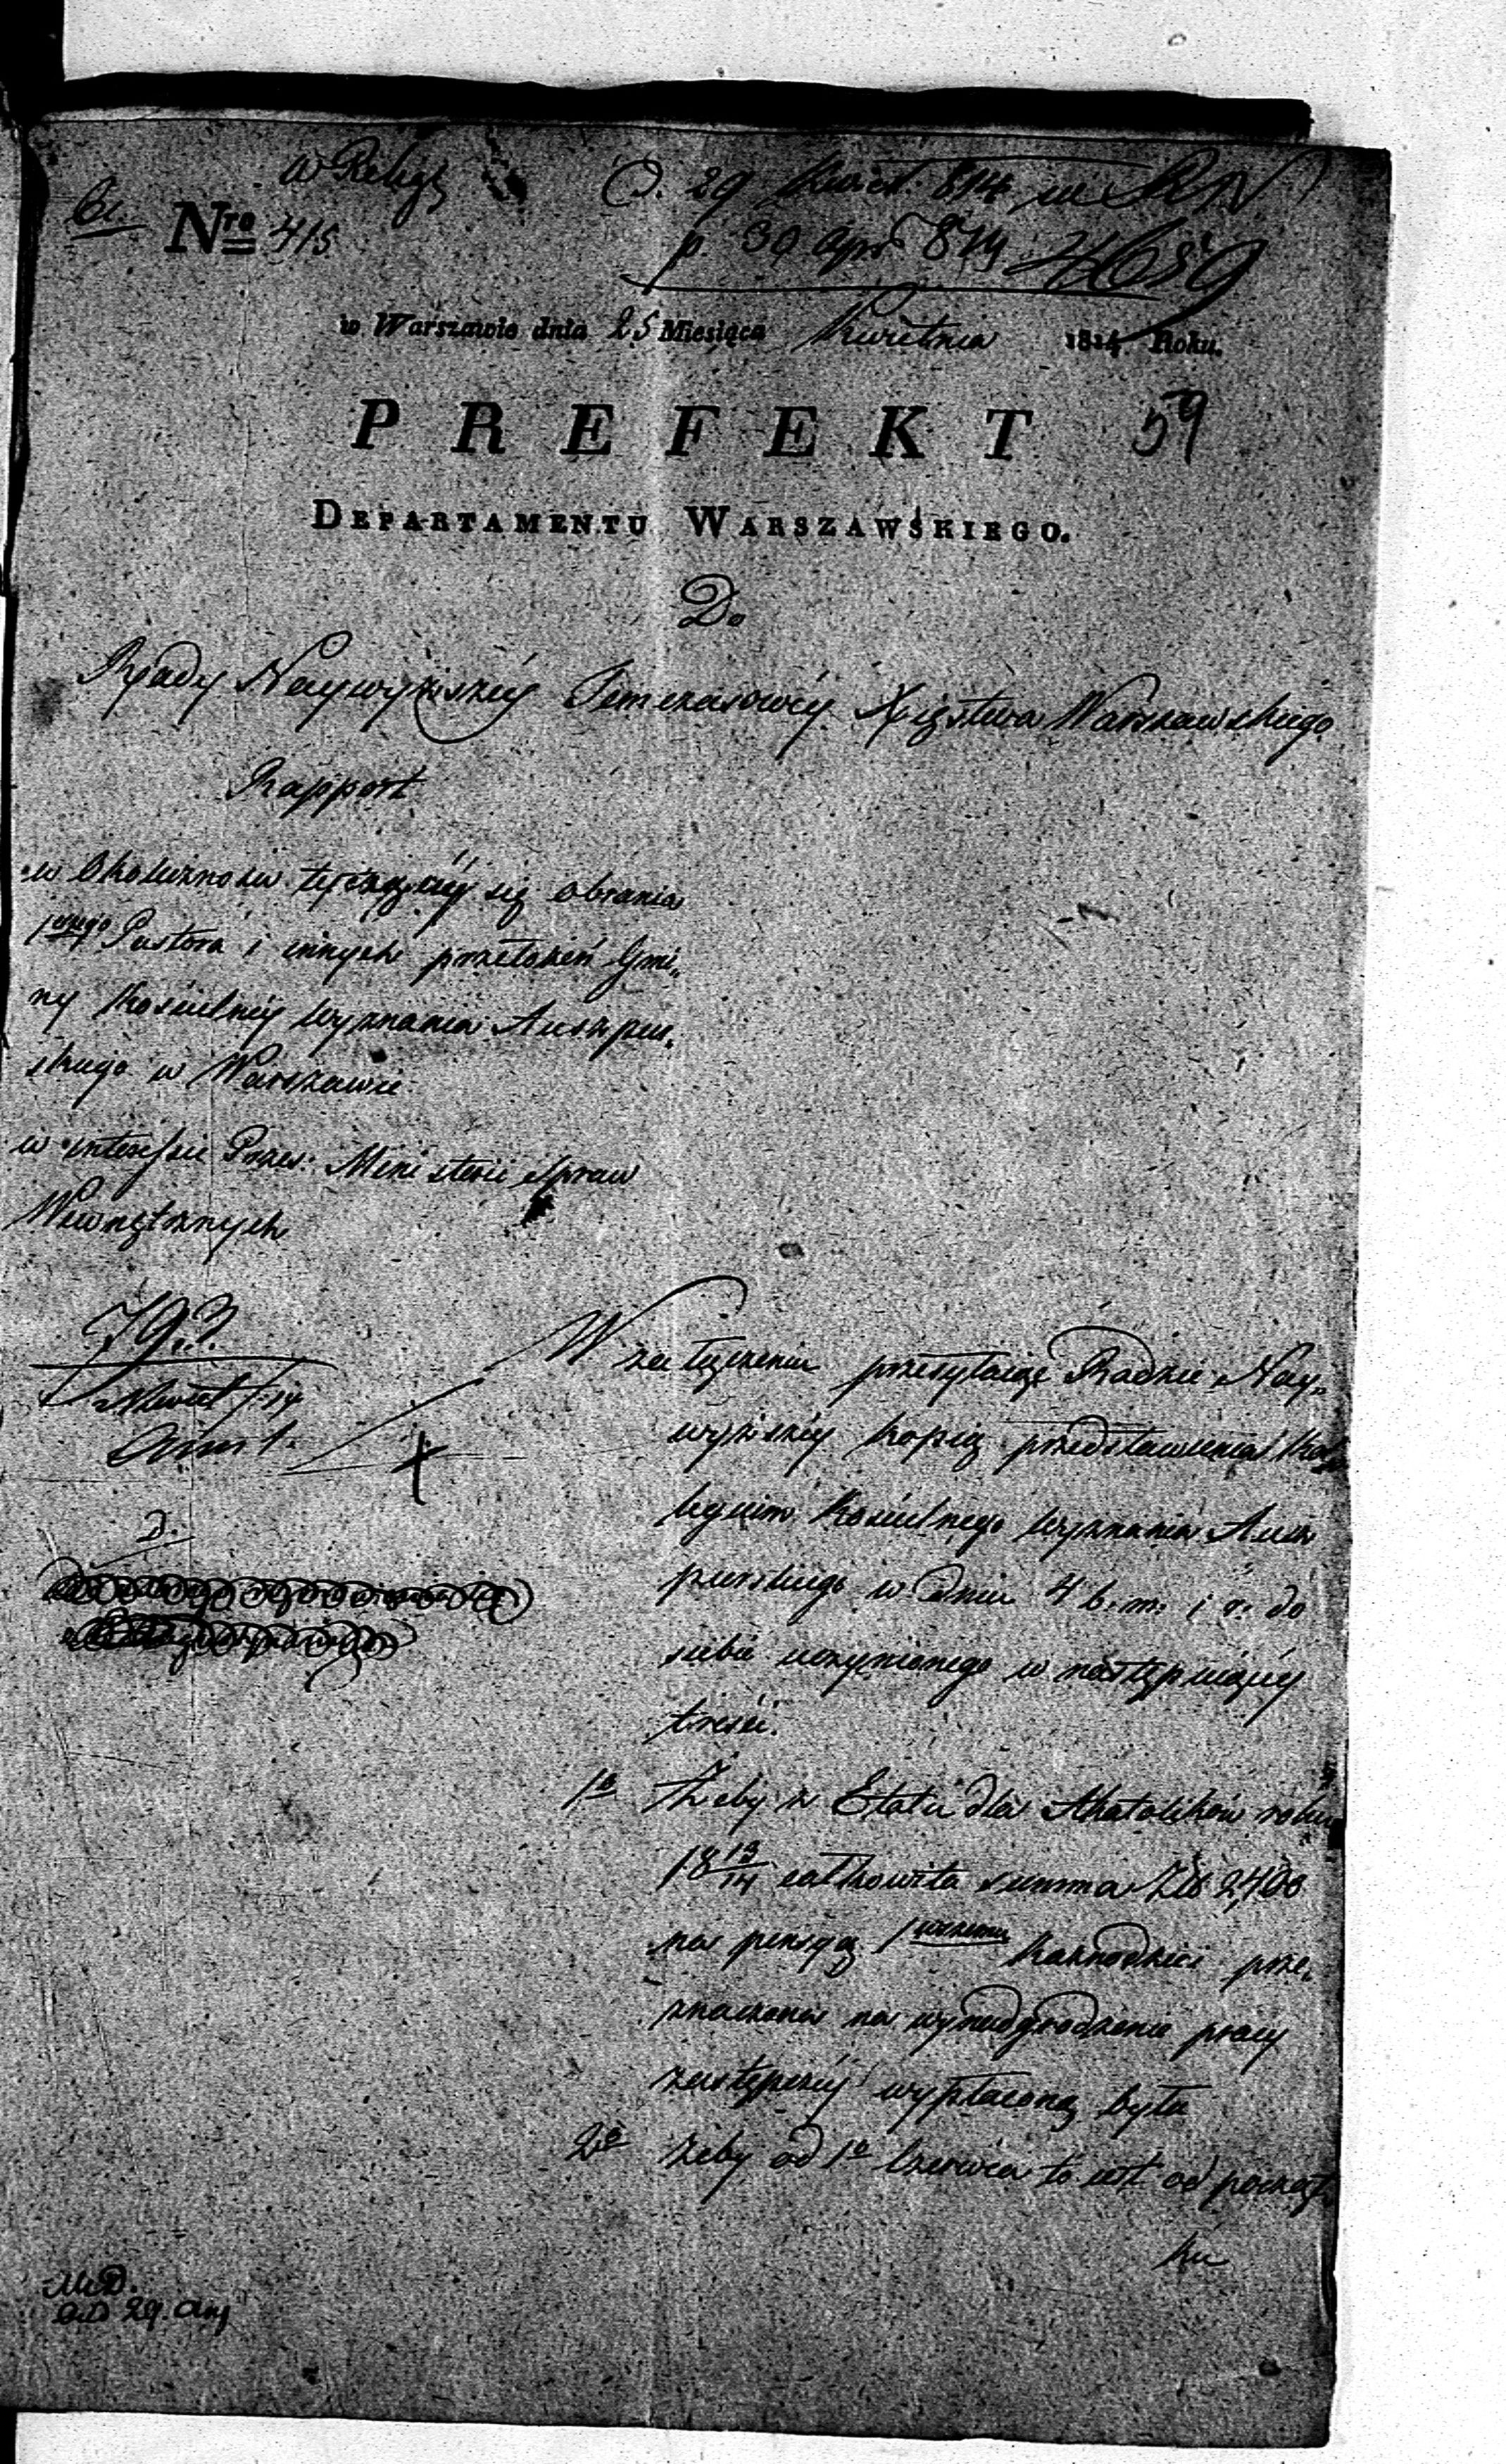 w Religÿ
O. 29 Kwiet. 814 w RN
Nro 415
p. 30 Apr 814 4659
w Warszawie dnia 25 Miesiąca Kwietnia 1814 Roku.
PREFEKT 59
DEPARTAMENTU WARSZAWSKIEGO.
Do
Rządy Naywyższéy Temczasowéy Xięstwa Warszawskiego
Rapport
w Okoliczności tyczącéy się obrania
1wszego Pastora i innych przełożeń Gmi„
ny Kościelnéy Wyznania Auszpur„
skiego w Warszawie
w interessie Przes: Ministerii Spraw
Wewnętrznych
793.
Kwiet 814
W załączeniu przesyłaiąc Radzie Nay„
wyższéy kopią przedstawienia Kol„
legium Kościelnego Wyznania Ausz
purskiego w dniu 4 b. m: i r: do
siebie uczynionego w następuiącéy
treści.
1o Żeby z Etatu dla Akatolików roku
18 13/14 całkowita summa Złt 2400
na pensyą 1wszemu Kaznodziei prze„
znaczona na wynadgrodzenie pracy
zastępczéy wypłaconą była
2o żeby od 1o Czerwca to iest od począt
ku
D.
29. Apr